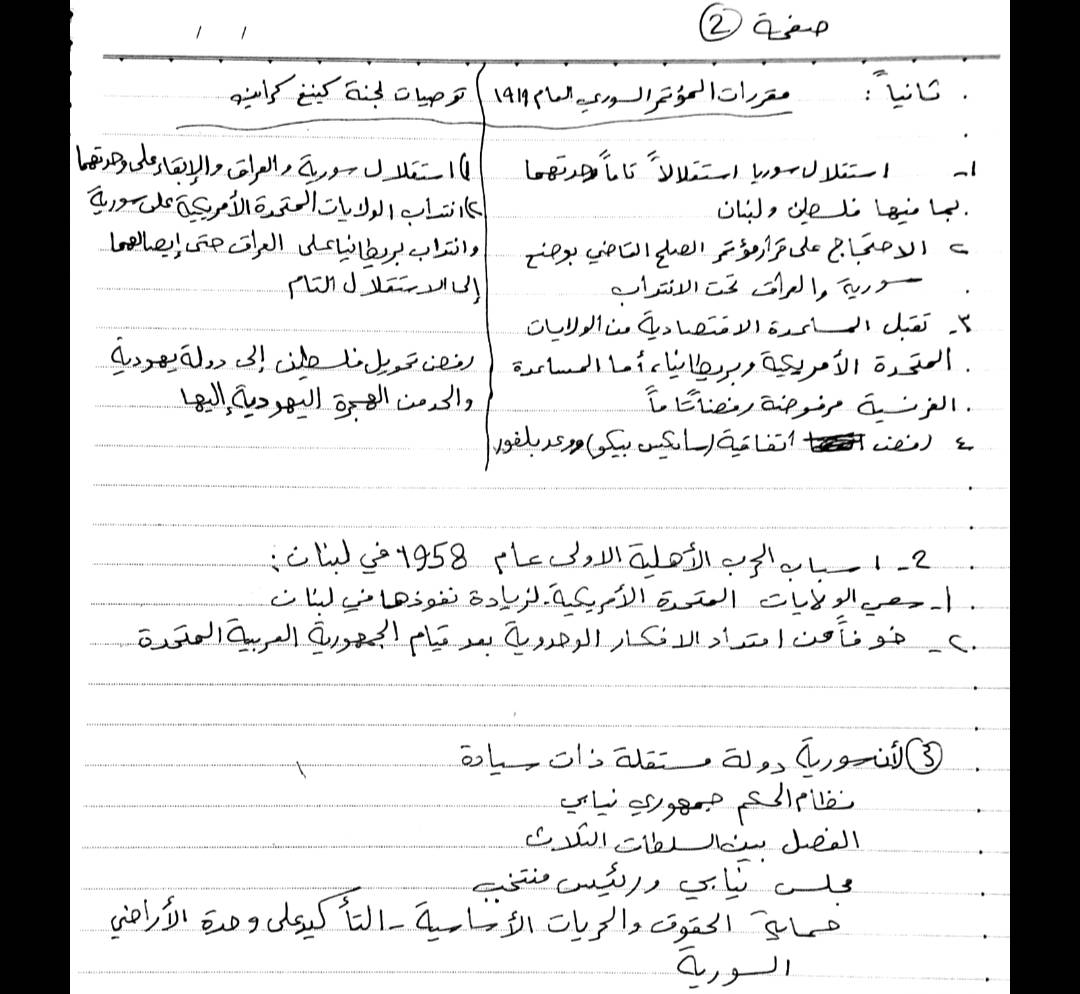 صفحة (2)
ثانياً :
مقررات المؤتمر السوري العام 1919
1- استقلال سوريا استقلالاً تاماً وحدتهما
بما فيها فلسطين ولبنان
٢ الاحتجاج على قرار مؤتمر الصلح القاضي بوضع
سورية والعراق تحت الانتداب
٣- تقبل المساعدة الاقتصادية من الولايات
المتحدة الأمريكية وبريطانيا، أما المساعدة
الفرنسية مرفوضة رفضاً تاماً
٤ رفض اتفاقية (سايكس بيكو) ووعد بلفور
توصيات لجنة كينغ كراين
1) استقلال سورية والعراق والإبقاء على وحدتهما
٢) انتداب الولايات المتحدة الأمريكية على سورية
وانتداب بريطانيا على العراق حتى إيصالهما
إلى الاستقلال التام
رفض تحويل فلسطين إلى دولة يهودية
والحد من الهجرة اليهودية إليها
2- اسباب الحرب الأهلية الاولى عام 1958 في لبنان :
1- سعي الولايات المتحدة الأمريكية لزيادة نفوذها في لبنان
٢- خوفاً من امتداد الافكار الوحدوية بعد قيام الجمهورية العربية المتحدة
(3) لأن سورية دولة مستقلة ذات سيادة
نظام الحكم جمهوري نيابي
الفصل بين السلطات الثلاث
مجلس نيابي ورئيس منتخب
حماية الحقوق والحريات الأساسية - التأكيد على وحدة الأراضي
السورية